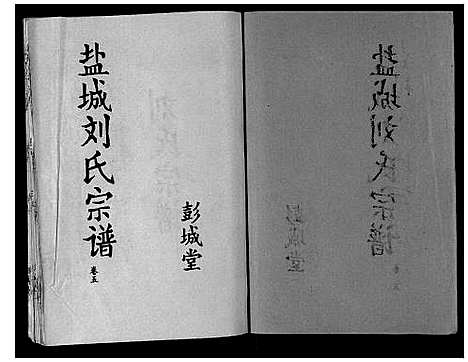 盐城刘氏宗谱
卷五
彭城堂
盐城刘氏宗谱
卷五
彭城堂